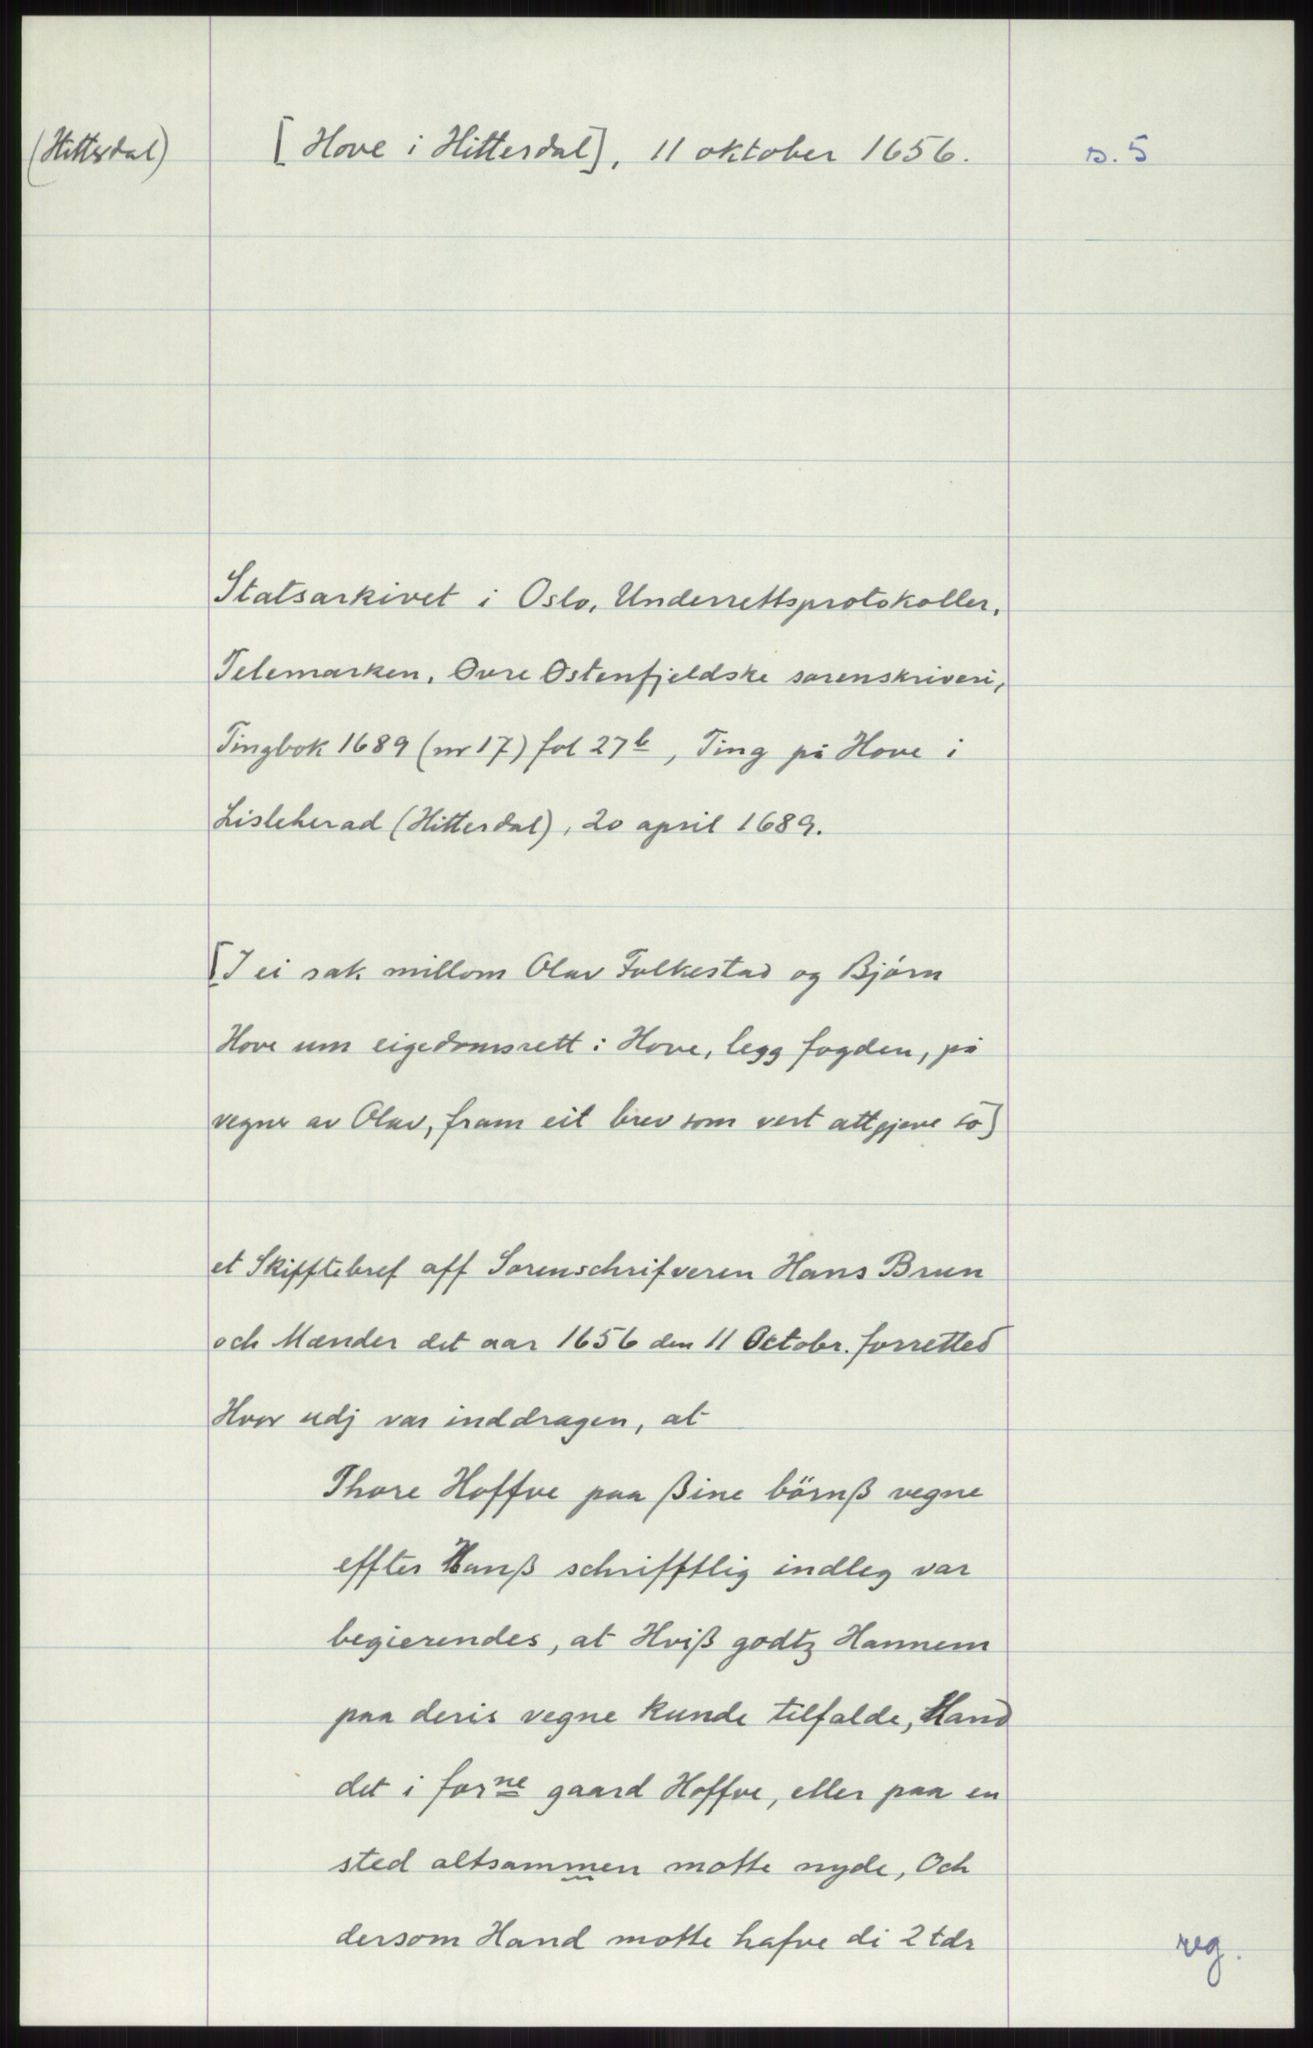 (Hitterdal) [Hove i Hitterdal], 11 oktober 1656. s. 5
Statsarkivet i Oslo, Underrettsprotokoller,
Telemarken, Øvre Østenfjeldske sorenskriveri,
Tingbok 1689 (nr 17) fol 27b, Ting på Hove i
Lisleherad (Hitterdal), 20 april 1689.
[I ei sak millom Olav Folkestad og Bjørn
Hove um eigedomsrett i Hove, legg fogden, på
vegne av Olav, fram eit brev som vert attgjeve så]
et Skifftebref aff Sorenschrifveren Hans Brun
och Mænder det aar 1656 den 11 Octobr. forretted
Hvor udj var inddragen, at
Thore Hoffve paa ßine börnß vegne
effter Hanß schrifftlig indleg var
begierendes, at Hviß godtz Hannem
paa deris vegne kunde tilfalde, Hand
det i forne gaard Hoffve, eller paa en
sted altsammen motte nyde, Och
dersom Hand motte hafve di 2 tdr
reg.